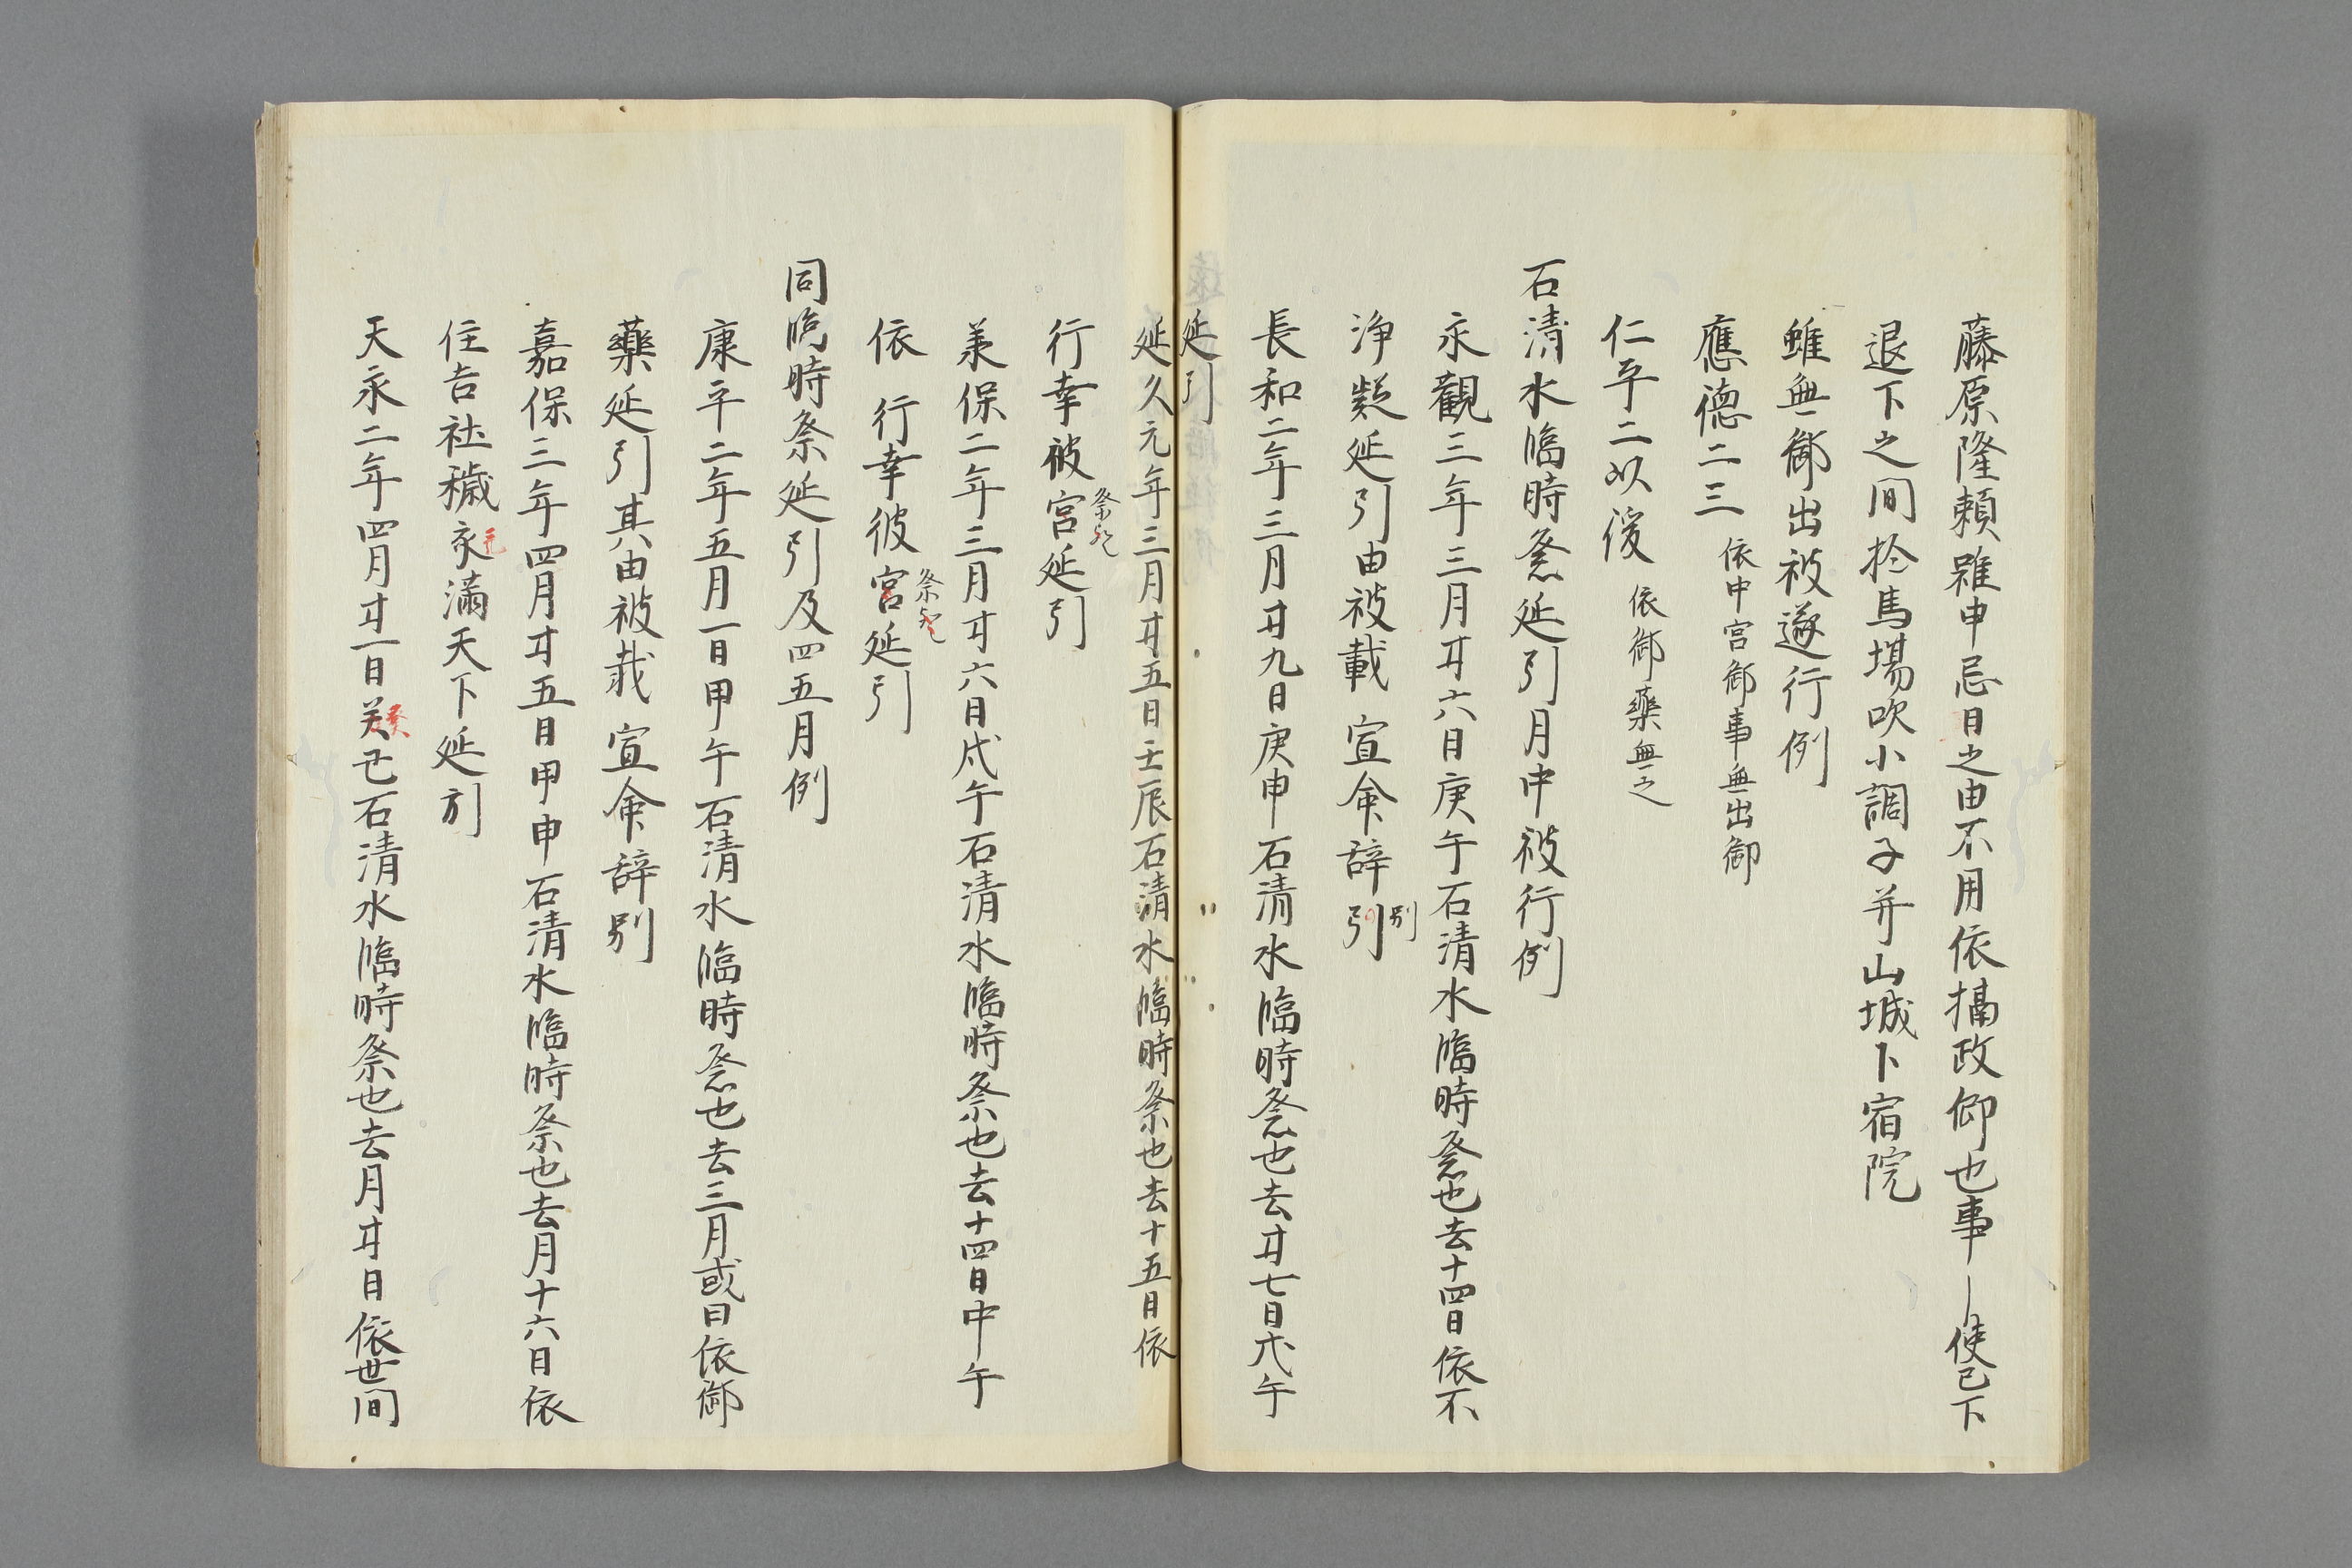 藤原隆頼雖申忌日之由不用依摂政仰也事―使已下
退下之間於馬場吹小調子并山城卜宿院
雖無御出被遂行例
應德二三 依中宮御事無出御
仁平二以後 依御藥無之
石清水臨時祭延引月中被行例
永觀三年三月廿六日庚午石清水臨時祭也去十四日依不
浄疑延引由被載 宣命辞引 別
長和二年三月廿九日庚申石清水臨時祭也去廿七日戊午
延引
延久元年三月廿五日壬辰石清水臨時祭也去十五日依
行幸被宮延引
承保二年三月廿六日戊午石清水臨時祭也去十四日中午
依 行幸彼宮延引
同臨時祭延引及四五月例
康平二年五月一日甲午石清水臨時祭也去三月或日依御
藥延引其由被載 宣命辞別
嘉保三年四月廿五日甲申石清水臨時祭也去月十六日依
住吉社穢永 充 滿天下延引
天永二年四月廿一日关 癸 丑石清水臨時祭也去月廿日依世間